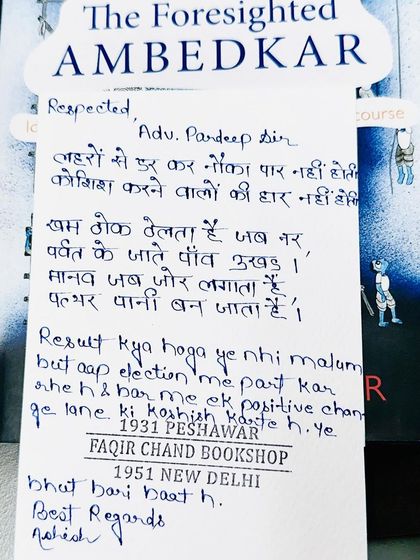 The Foresighted
AMBEDKAR
course
Respected,
Adv. Pardeep Sir
लहरों से डर कर नौका पार नहीं होती
कोशिश करने वालों की हार नहीं होती
खम ठोक ठेलता है जब नर
पर्वत के जाते पाँव उखड़।
मानव जब जोर लगाता है
पत्थर पानी बन जाता है।
Result kya hoga ye nhi malum
but aap election me part kar
rhe h & bar me ek positive chan
ge lane ki koshish karte h. ye
1931 PESHAWAR
FAQIR CHAND BOOKSHOP
1951 NEW DELHI
bhut bari baat h.
Best Regards
Ashish
R